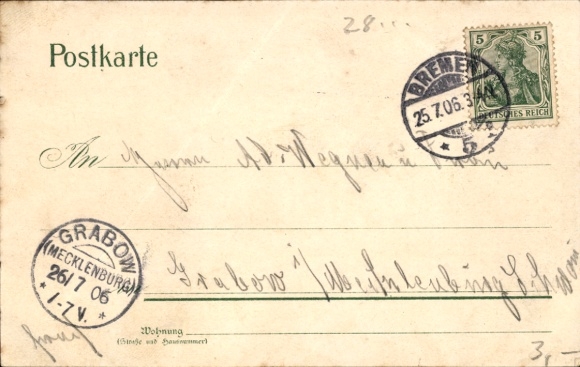 28...
Postkarte
5 5
DEUTSCHES REICH
BREMEN
25.7.06.3-4N.
* 5 *
An Herrn Ad. Wegner u Frau
GRABOW
(MECKLENBURG)
26/7 06
* 1-7 V. *
Grabow i/Mecklenburg Schwerin
Wohnung
(Straße und Hausnummer)
3,-